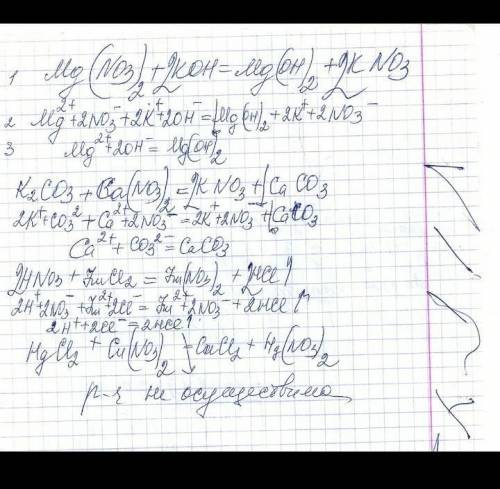 1 Mg(NO3)2+2KOH=Mg(OH)2+2KNO3
2 Mg2++2NO3-+2K++2OH-=Mg(OH)2+2K++2NO3-
3 Mg2++2OH-=Mg(OH)2
K2CO3+Ca(NO3)2=2KNO3+CaCO3
2K++CO32-+Ca2++2NO3-=2K++2NO3-+CaCO3
Ca2++CO32-=CaCO3
2HNO3+ZnCl2=Zn(NO3)2+2HCl↑
2H++2NO3-+Zn2++2Cl-=Zn2++2NO3-+2HCl↑
2H++2Cl-=2HCl↑
HgCl2+Cu(NO3)2→CuCl2+Hg(NO3)2
р-я не осуществима